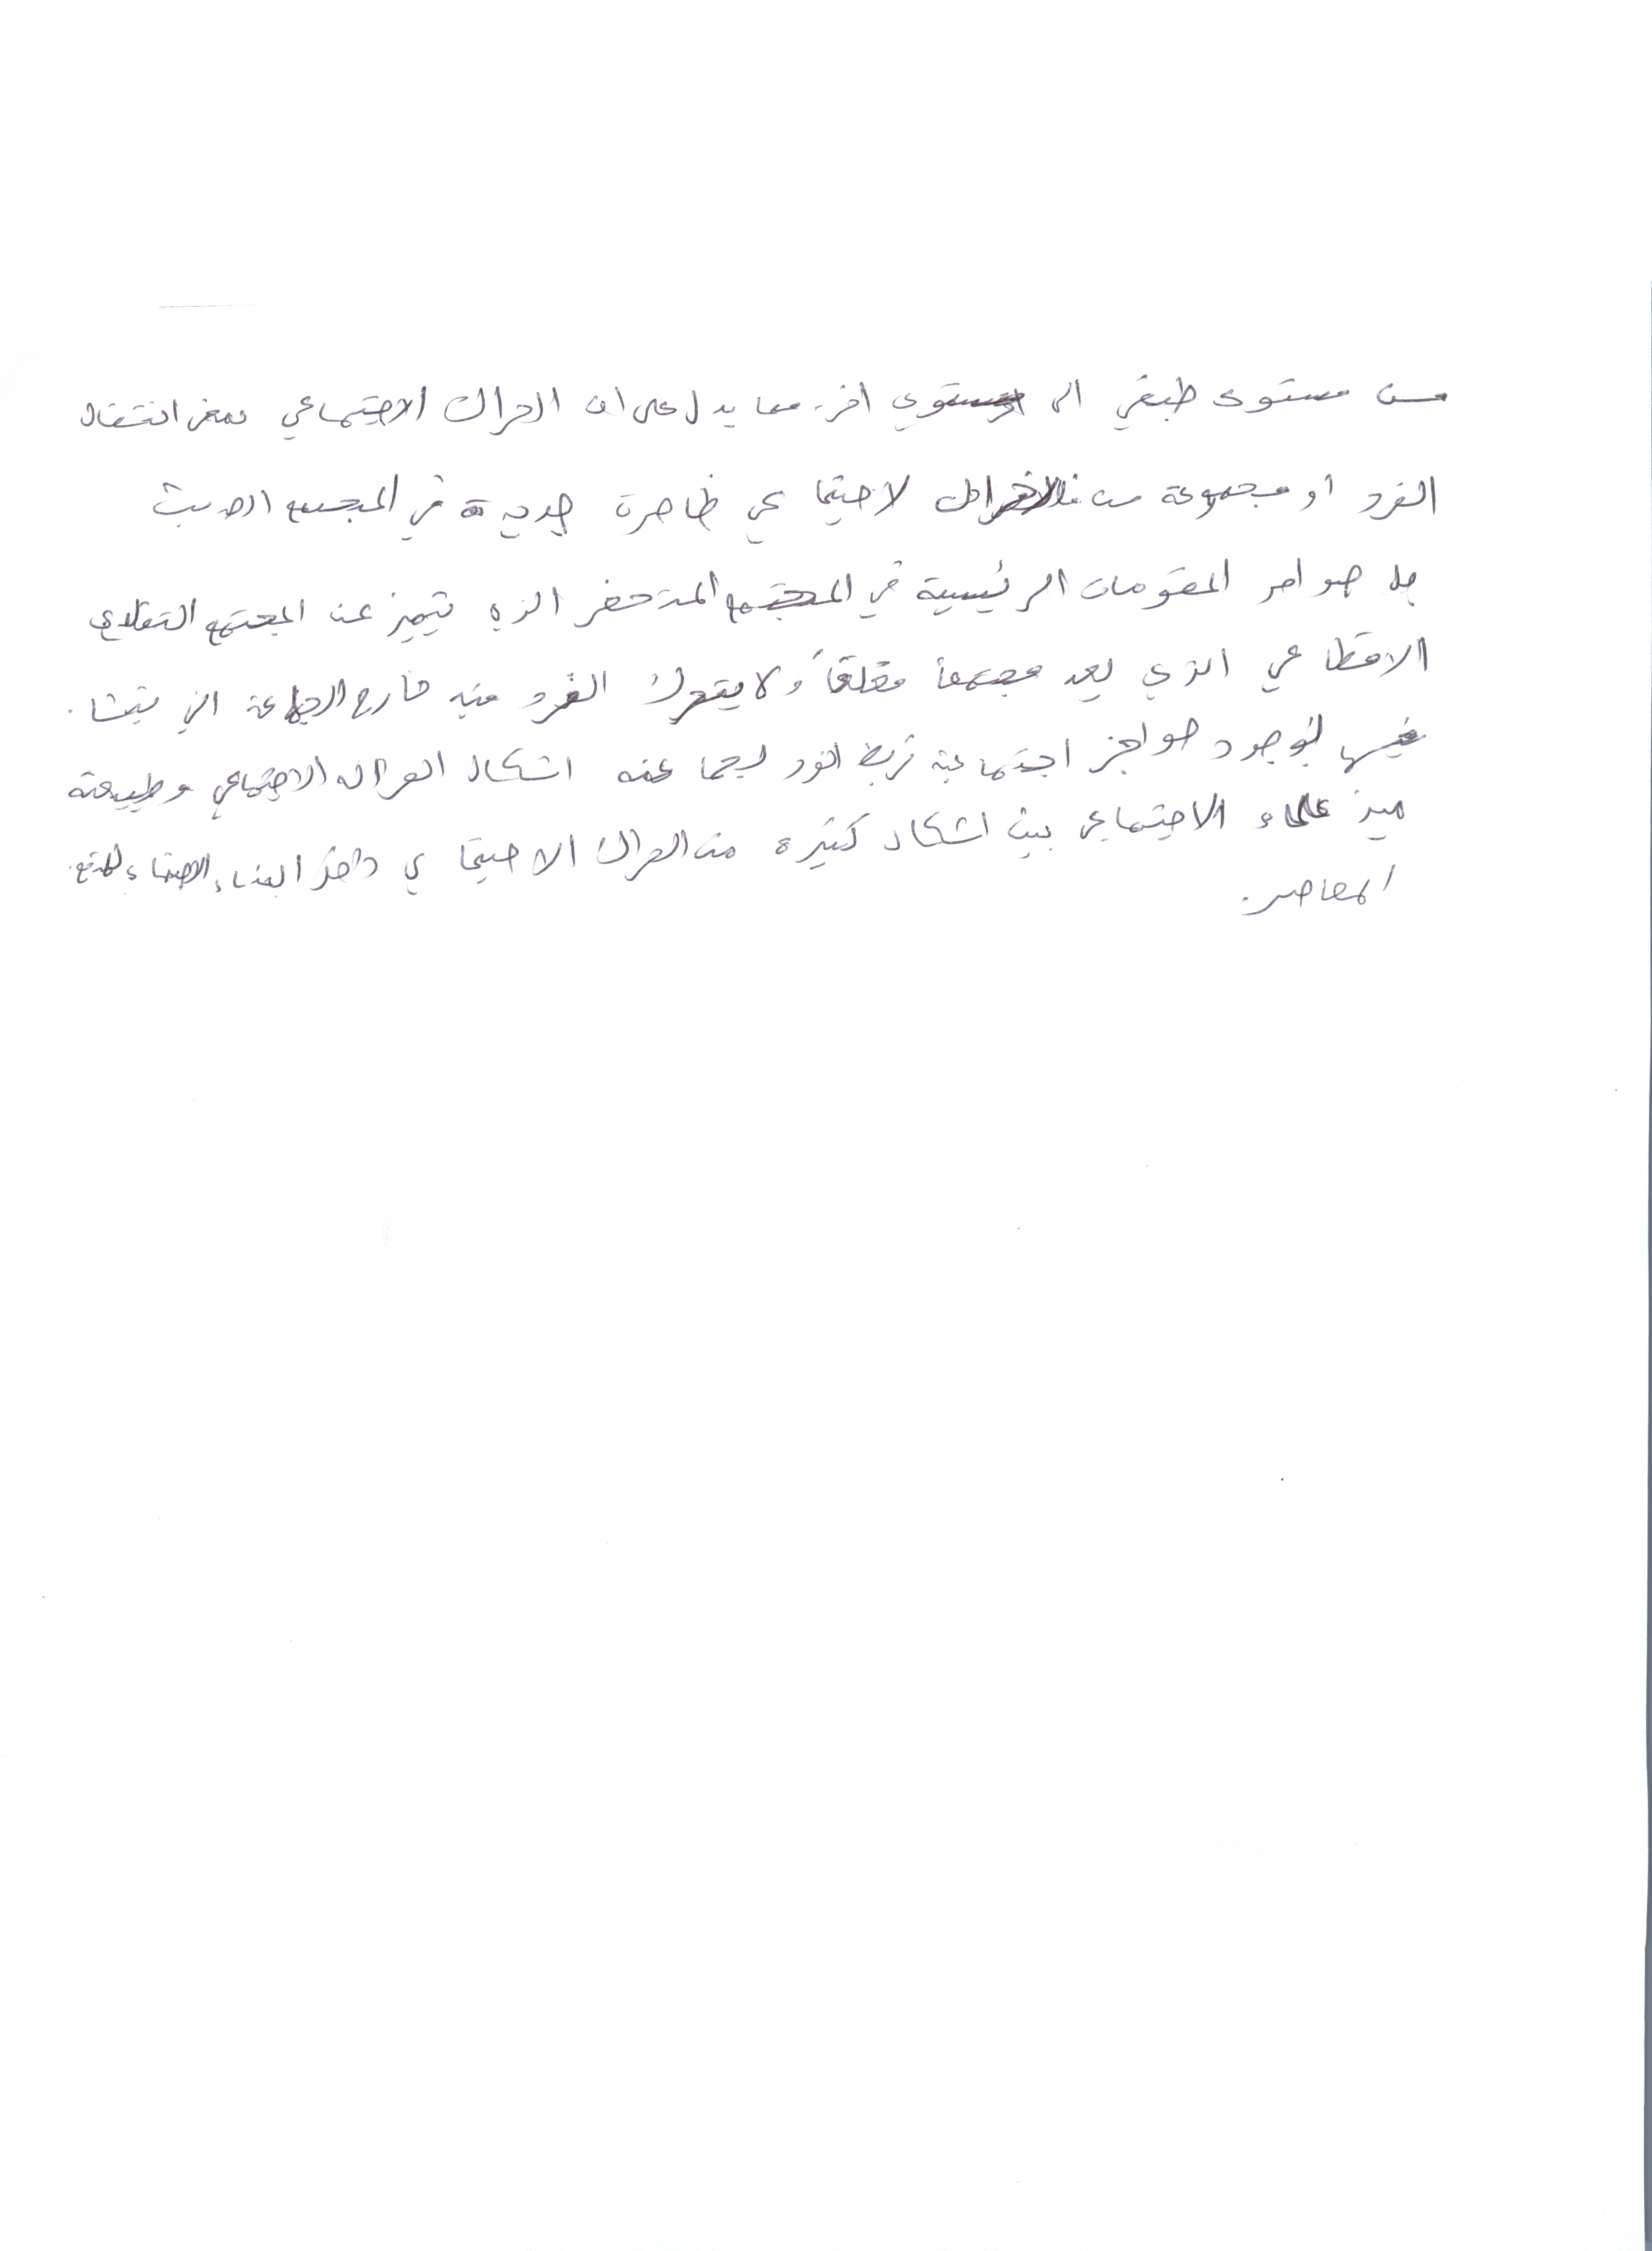 من مستوى طبقي الى مستوى اخر مما يدل على ان الحراك الاجتماعي بمعنى انتقال
الفرد او مجموعة من الافراد لاجتماعي ظاهرة جديدة في المجتمع الحديث
بل هو احر المقومات الرئيسية في المجتمع المتحضر الذي يتميز عن المجتمع التقليدي
الاقطاعي الذي يعد مجتمعاً مغلقاً ولا يتحرك الفرد فيه خارج الجماعة التي ينشا
فيها لوجود حواجز اجتماعية تربط الفرد بجماعته اشكال الحراك الاجتماعي وطبيعته
ميز علماء الاجتماعي بين اشكال كثيرة من الحراك الاجتماعي داخل البناء الاجتماعي للمجتمع
المعاصر.